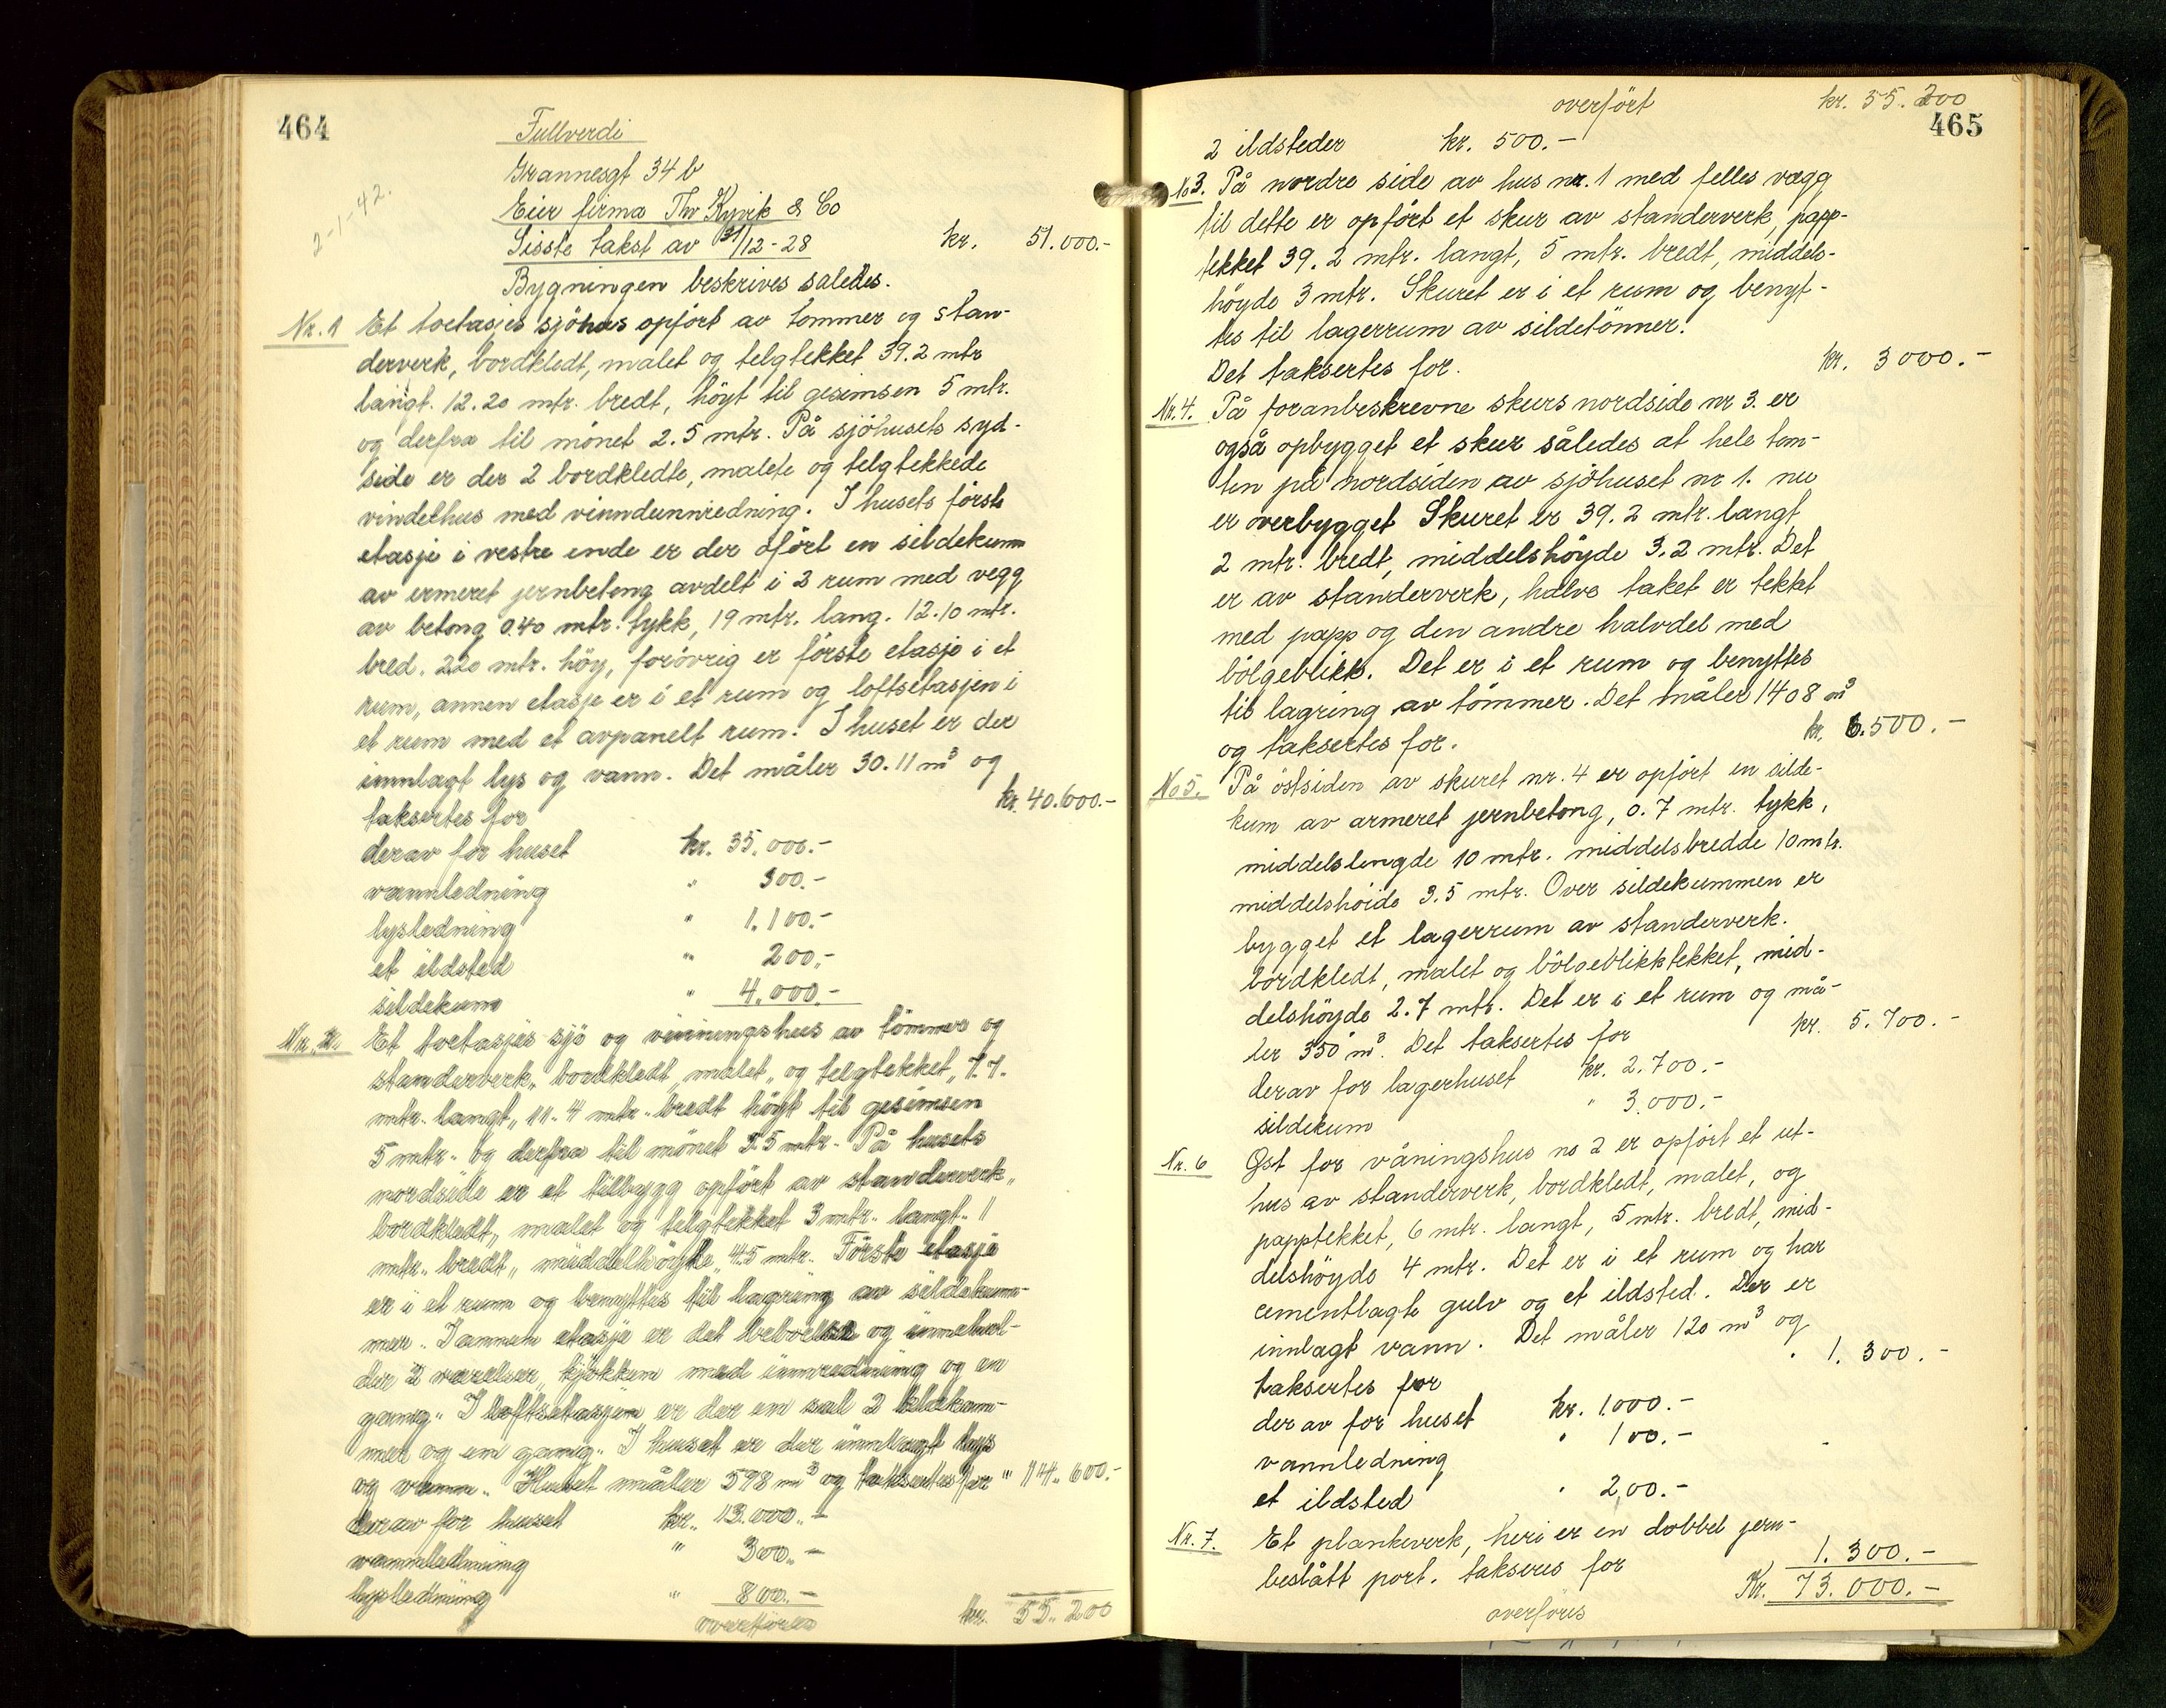 464
Fullverdi
2-1-42.
Grannesgt 34 b
Eier firma Thv Kyvik & Co
Sisste takst av 31/12-28 kr. 51.000.-
Bygningen beskrives saledes.
Nr. 1 Et toetasjes sjöhus opfört av tömmer og stan-
derverk, bordkledt, malet og telgtekket 39.2 mtr
langt. 12.20 mtr. bredt, höyt til gesimsen 5 mtr.
og derfra til mönet 2.5 mtr. På sjöhusets syd-
side er der 2 bordkledte, malete og telgtekkede
vindehus med vinndeinnredning. I husets förste
etasje i vestre ende er der ofört en sildekum
av ermeret jernbetong avdelt i 2 rum med vegg
av betong 0.40 mtr. tykk, 19 mtr. lang. 12.10 mtr.
bred. 220 mtr. höy, forövrig er förste etasje i et
rum, annen etasje er i et rum og loftsetasjen i
et rum med et avpanelt rum. I huset er der
innlagt lys og vann. Det måler 30.11 m³ og
taksertes for kr. 40.600.-
derav for huset kr. 35.000.-
vannledning " 300.-
lysledning " 1.100.-
et ildsted " 200.-
sildekum " 4.000.-
Nr. 2. Et toetasjes sjö og vinningshus av tömmer og
standerverk, bordkledt, malet, og telgtekket, 7.7.
mtr. langt, 11.4 mtr. bredt höyt til gesimsen
5 mtr. og derfra til mönet 2.5 mtr. På husets
nordside er et tilbygg opfört av standerverk,
bordkledt, malet og telgtekket 3 mtr. langt. 11
mtr. bredt, middelhöyde, 4.5 mtr. Förste etasje
er i et rum og benyttes til lagring av sildekum-
mer. I annen etasje er det beboelse og innehol-
der 2 værelser, kjökken med innredning og en
gang. I loftsetasjen er der en sal 2 kldekam-
mer og en gang. I huset er der innlagt lys
og vann. Huset måler 598 m³ og taksertes for " 14.600.-
derav for huset kr. 13.000.-
vannledning " 300.-
lysledning " 800.-
overföres kr. 55.200
overfört kr. 55.200
465
2 ildsteder kr. 500.-
No 3. På nordre side av hus nr. 1 med felles vægg
til dette er opfört et skur av standerverk, papp-
tekket 39.2 mtr. langt, 5 mtr. bredt, middels-
höyde 3 mtr. Skuret er i et rum og benyt-
tes til lagerrum av sildetönner.
Det taksertes for. kr. 3000.-
Nr. 4. På foranbeskrevne skurs nordside nr 3. er
også opbygget et skur således at hele tom-
ten på nordsiden av sjöhuset nr 1. nu
er overbygget Skuret er 39.2 mtr. langt
2 mtr. bredt, middelshöyde 3.2 mtr. Det
er av standerverk, halve taket er tekket
med papp og den andre halvdel med
bölgeblikk. Det er i et rum og benyttes
til lagring av tömmer. Det måler 1408 m³
og taksertes for. kr. 6.500.-
No 5. På östsiden av skuret nr. 4 er opfört en silde-
kum av armeret jernbetong, 0.7 mtr. tykk,
middelslengde 10 mtr. middelsbredde 10 mtr.
middelshöide 3.5 mtr. Over sildekummen er
bygget et lagerrum av standerverk.
bordkledt, malet og bölgeblikktekket, mid-
delshöyde 2.7 mtr. Det er i et rum og må-
ler 350 m³. Det taksertes for kr. 5.700.-
derav for lagerhuset kr. 2.700.-
sildekum " 3.000.-
Nr. 6 Öst for våningshus no 2 er opfört et ut-
hus av standerverk, bordkledt, malet, og
papptekket, 6 mtr. langt, 5 mtr. bredt, mid-
delshöyde 4 mtr. Det er i et rum og har
cementlagte gulv og et ildsted. Der er
innlagt vann. Det måler 120 m³ og
taksertes for " 1.300.-
der av for huset kr. 1.000.-
vannledning " 100.-
et ildsted " 200.-
Nr. 7. Et plankeverk, heri er en dobbel jern-
beslått port. takseres for 1.300.-
Kr. 73.000.-
overföres